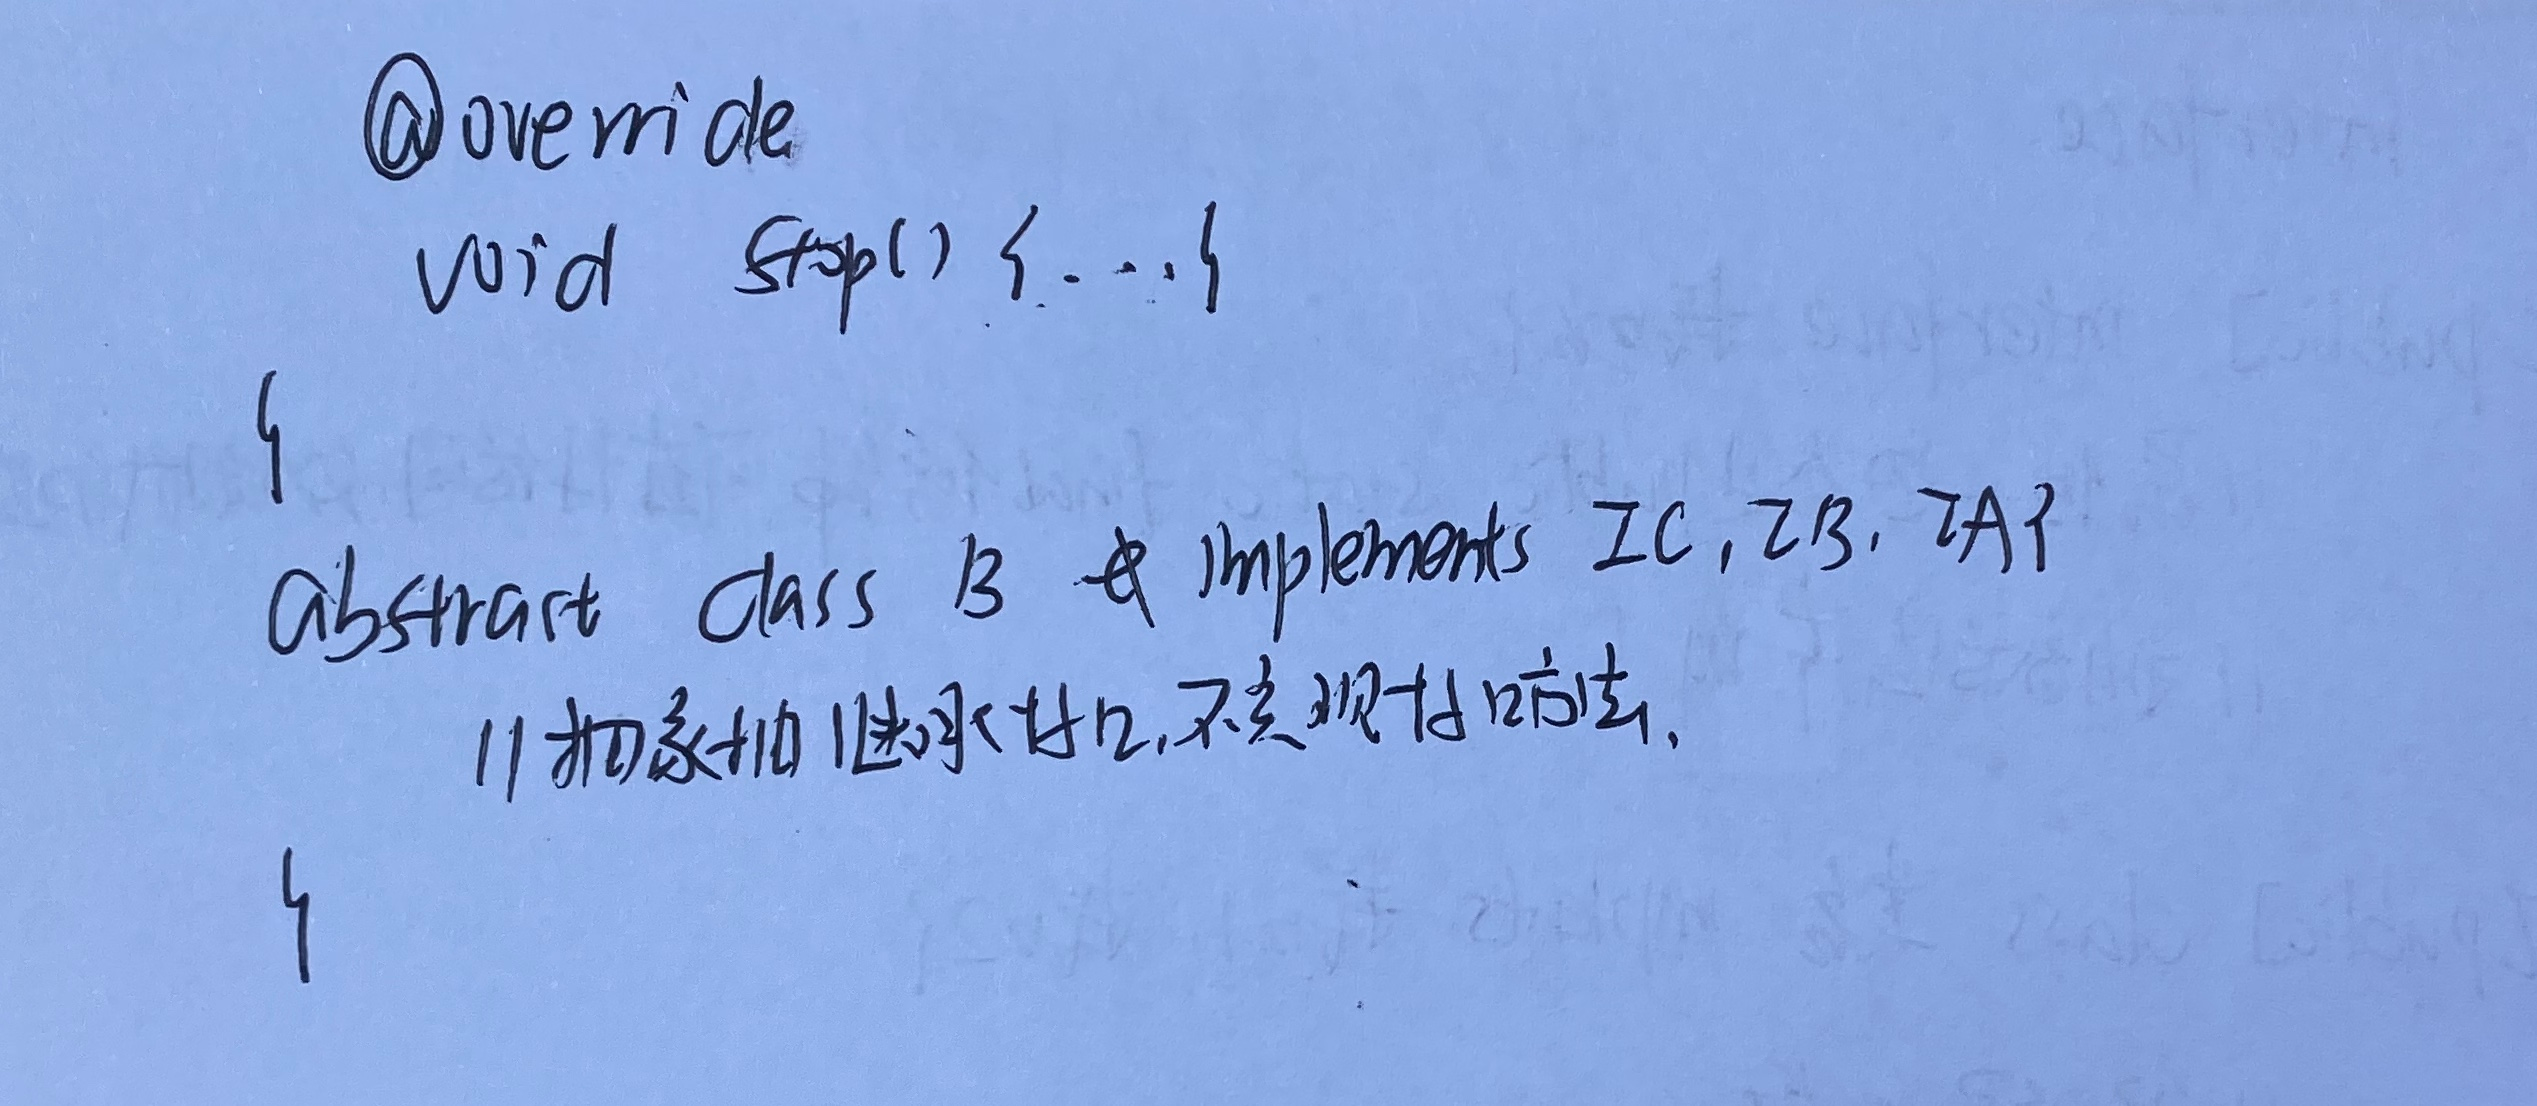 @override
void stop() {....}
}
abstract class B implements IC, IB, IA{
//抽象抽继承接口,不实现接口方法.
}